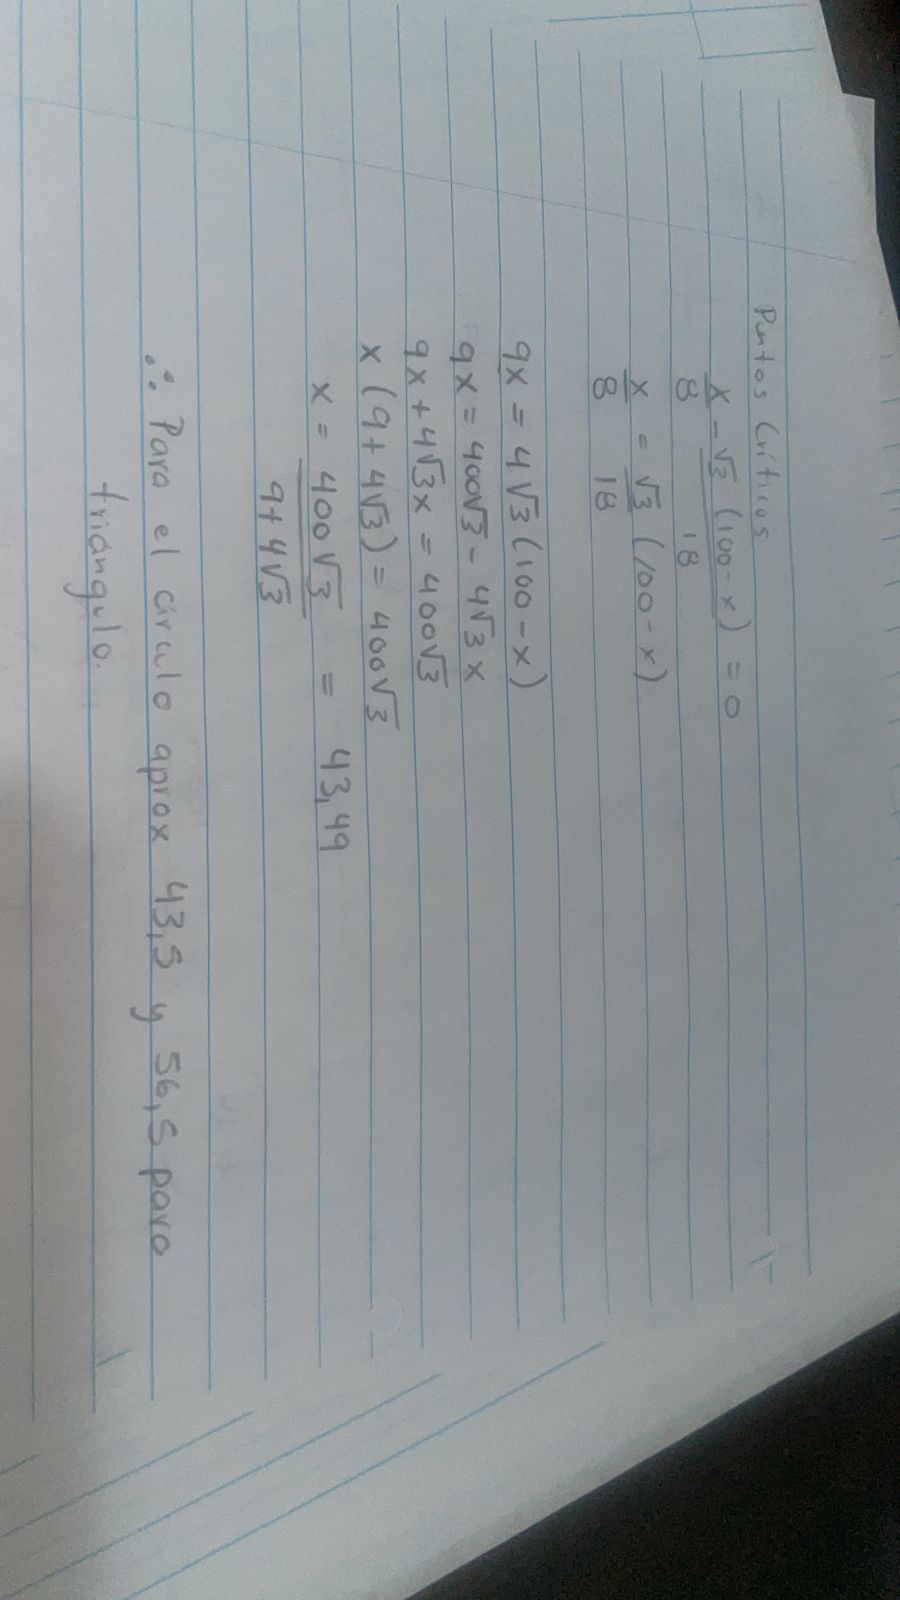 Puntos Críticos
x/8 - √3 (100-x)/18 = 0
x/8 = √3/18 (100-x)
9x = 4√3(100-x)
9x = 400√3 - 4√3x
9x + 4√3x = 400√3
x (9+4√3) = 400√3
x = 400√3/(9+4√3) = 43,49
∴ Para el círculo aprox 43,5 y 56,5 para
triángulo.